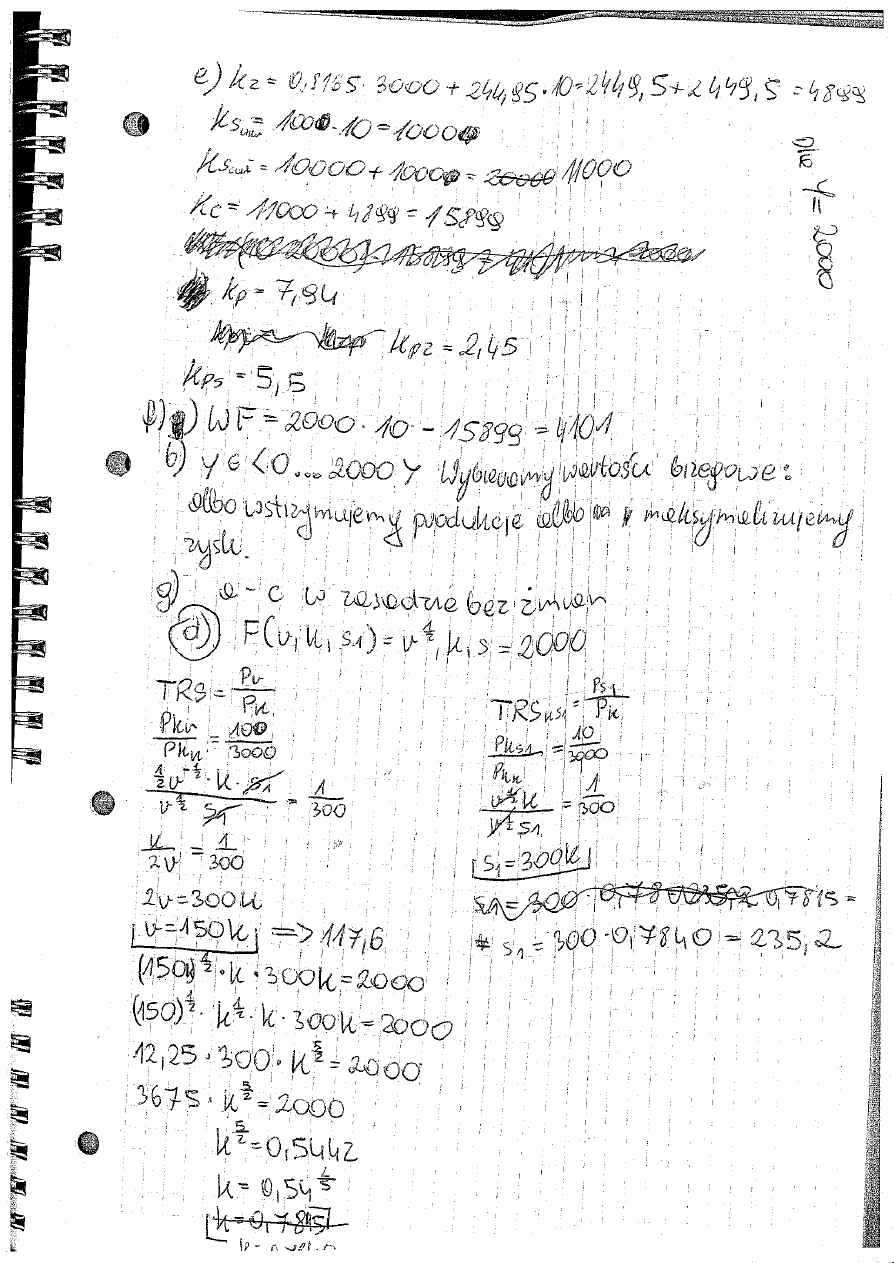 e) Kz = 0,8165 · 3000 + 244,95 · 10 = 2449,5 + 2449,5 = 4899
= 1000 · 10 = 10000
= 10000 + 1000 = 20000 11000
Kc = 11000 + 4899 = 15899
dla Y = 2000
Kp = 7,94
Kpz = 2,45
Kps = 5,5
f) a) WF = 2000 · 10 - 15899 = 4101
b) y ∈ <0...2000> Wybieramy wartości brzegowe:
albo wstrzymujemy produkcje albo maksymalizujemy
zysk.
g) a - c w zasadzie bez zmian
d) F(v, k, s1) = v^½, k, s = 2000
TRS = Pv/Pk
Pkv/Pkk = 100/3000
½v^-½ · k · s1 / v^½ s1 = 1/300
k/2v = 1/300
2v = 300k
v = 150k => 117,6
(150k)^½ · k · 300k = 2000
(150)^½ · k^½ · k · 300k = 2000
12,25 · 300 · k^5/2 = 2000
3675 · k^5/2 = 2000
k^5/2 = 0,5442
k = 0,54^2/5
k = 0,7815
TRSks1 = Ps1/Pk
Pks1/Pkk = 10/3000
v^½ k / v^½ s1 = 1/300
s1 = 300k
s1 = 300 · 0,7815 =
s1 = 300 · 0,7840 = 235,2